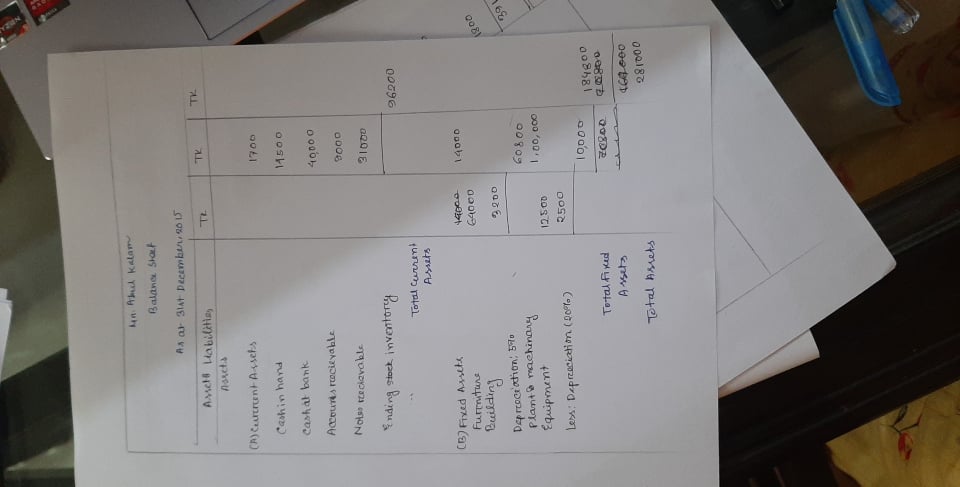 Mr. Abul Kalam
Balance Sheet
As at 31st December, 2015
Asset & Liabilities TK TK TK
Assets
(A) Current Assets
Cash in hand 1700
Cash at bank 14500
Accounts receivable 40,000
Notes receivable 9000
Ending stock inventory 31000
Total Current Assets 96200
(B) Fixed Assets
Furniture 14000
Building 64000
Depreciation: 5% 3200 60800
Plant & machinary 1,00,000
Equipment 12500
Less: Depreciation (20%) 2500 10,000
Total Fixed Assets 184800
Total Assets 281000